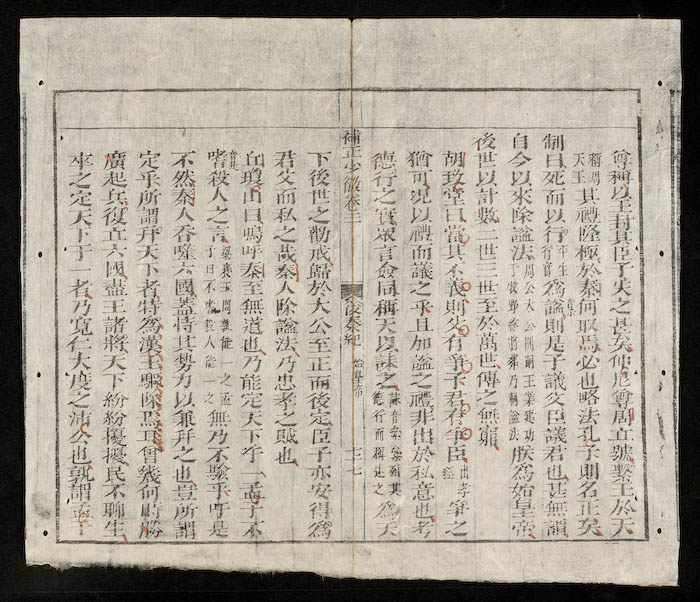 尊稱以王封其臣子失之甚矣仲尼尊周立號繫王於天
稱周天王其禮隆極於秦何取焉必也略法孔子則名正矣
制曰死而以行爲諡則是子議父臣議君也甚無謂
自今以來除諡法周公太公開嗣王業建功于牧野終將葬乃制諡法朕爲始皇帝
後世以計數二世三世至於萬世傳之無窮
胡致堂曰當其不義則父有爭子君有爭臣出孝經爭之
猶可況以禮而議之乎且加諡之禮非出於私意也考
德行之實眾言僉同稱天以誄之誄音累累列其德行而稱述之爲天
補正少微卷三 後秦紀 始皇帝 三七
下後世之勸戒歸於大公至正而後定臣子亦安得爲
君父而私之哉秦人除諡法乃忠孝之賊也
丘瓊山曰嗚呼秦至無道也乃能定天下於一孟子不
嗜殺人之言梁襄王問孰能一之孟子曰不嗜殺人能一之無乃不驗乎于是
不然秦人吞噬六國蓋恃其勢力以兼并之也豈所謂
定乎所謂并天下者特爲漢王驅除焉耳曾幾何時勝
廣起兵復立六國盡王諸將天下紛紛擾擾民不聊生
卒之定天下于一者乃寬仁大度之沛公也孰謂孟子